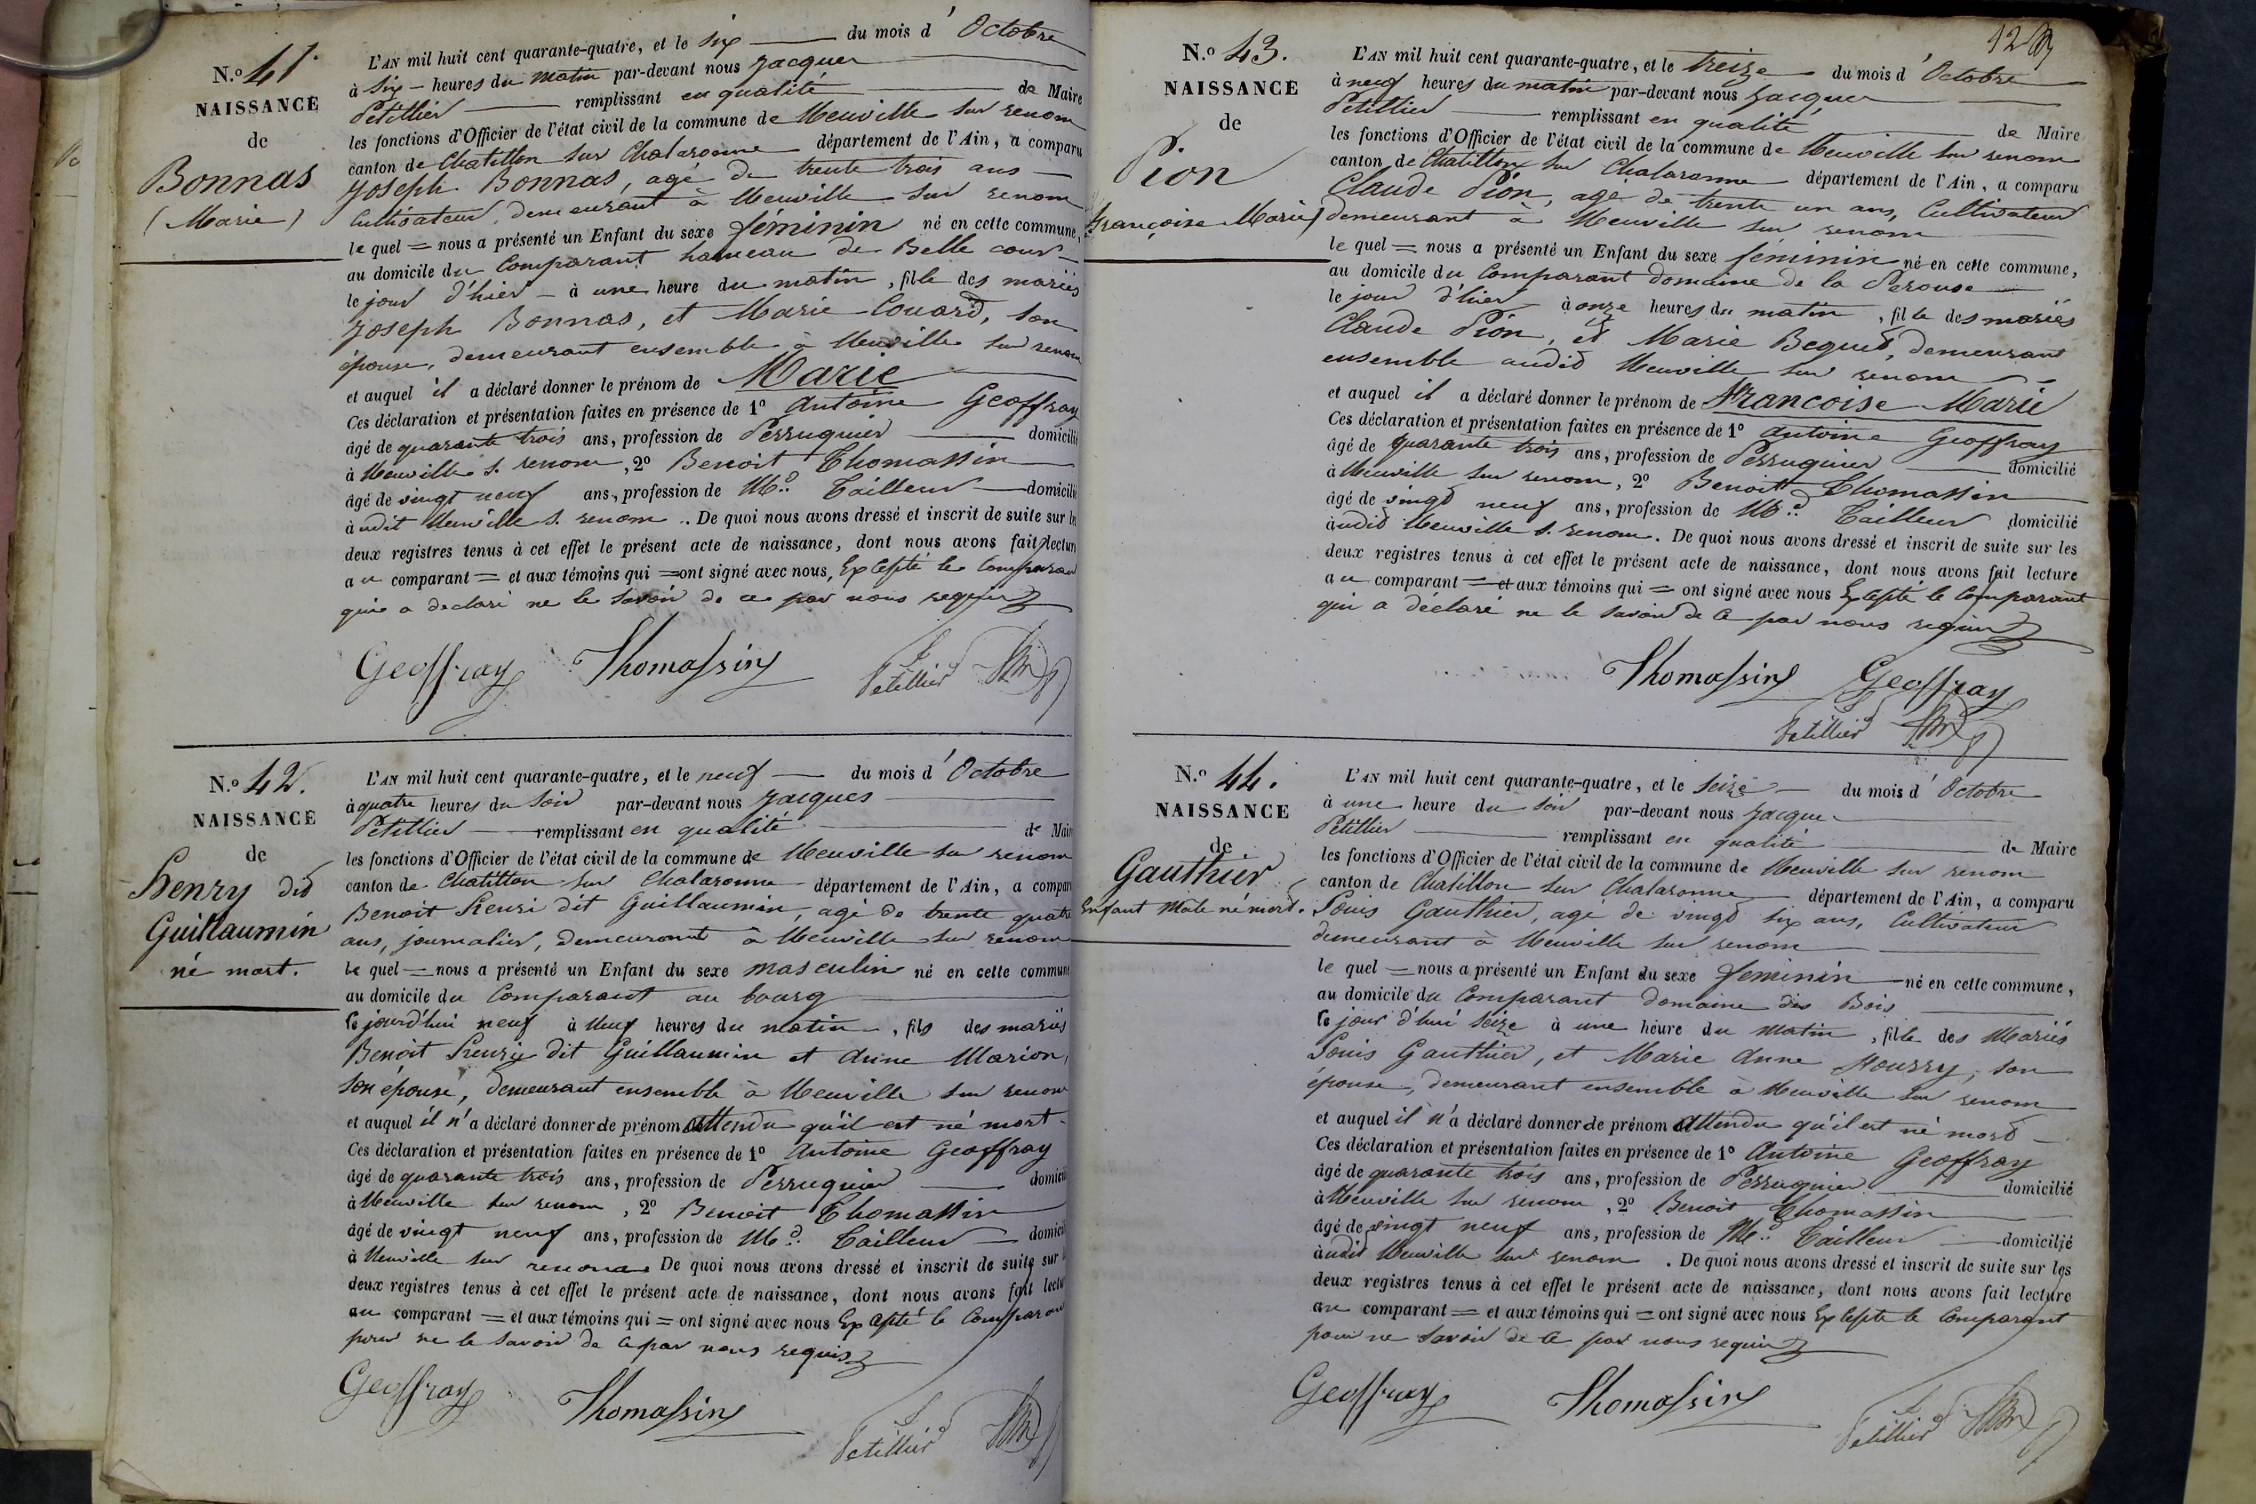 N.o 41.
NAISSANCE
de
Bonnas
(Marie)
L'AN mil huit cent quarante-quatre, et le six du mois d'Octobre
à six heures du matin par-devant nous Jacques
Petillier remplissant en qualité de Maire
les fonctions d'Officier de l'état civil de la commune de Neuville sur renom
canton de Chatillon sur Chalaronne département de l'Ain, a comparu
Joseph Bonnas, agé de trente trois ans
Cultivateur, demeurant à Neuville sur renom
le quel = nous a présenté un Enfant du sexe féminin né en cette commune,
au domicile du Comparant hameau de Belle cour
le jour d'hier à une heure du matin, fille des mariés
Joseph Bonnas, et Marie Couard, son
épouse, demeurant ensemble à Neuville sur renom
et auquel il a déclaré donner le prénom de Marie
Ces déclaration et présentation faites en présence de 1o Antoine Geoffray
âgé de quarante trois ans, profession de Perruquier domicilié
à Neuville s. renom, 2o Benoit Thomassin
âgé de vingt neuf ans, profession de Md. Tailleur domicilié
à udit Neuville s. renom. De quoi nous avons dressé et inscrit de suite sur les
deux registres tenus à cet effet le présent acte de naissance, dont nous avons fait lecture
au comparant = et aux témoins qui = ont signé avec nous, Excepté le Comparant
qui a declaré ne le savoir de ce par nous requis
Geoffray Thomassin Petillier
N.o 42.
NAISSANCE
de
Henry dit
Guillaumin
né mort.
L'AN mil huit cent quarante-quatre, et le neuf du mois d'Octobre
à quatre heures du soir par-devant nous Jacques
Petillier remplissant en qualité de Mair
les fonctions d'Officier de l'état civil de la commune de Neuville sur renom
canton de Chatillon sur Chalaronne département de l'Ain, a comparu
Benoit Henri dit Guillaumin, agé de trente quatre
ans, journalier, demeurant à Neuville sur renom
le quel = nous a présenté un Enfant du sexe masculin né en cette commune
au domicile du Comparant au bourg
le jourd'hui neuf à neuf heures du matin, fils des mariés
Benoit Henry dit Guillaumin et Anne Marion,
son épouse, demeurant ensemble à Neuville sur renom
et auquel il n'a déclaré donner de prénom attendu qu'il est né mort.
Ces déclaration et présentation faites en présence de 1o Antoine Geoffray
âgé de quarante trois ans, profession de Perruquier domicilié
à Neuville sur renom, 2o Benoit Thomassin
âgé de vingt neuf ans, profession de Md. Tailleur domicilié
à Neuville sur renom. De quoi nous avons dressé et inscrit de suite sur
deux registres tenus à cet effet le présent acte de naissance, dont nous avons fait lectu
au comparant = et aux témoins qui = ont signé avec nous Excepté le Comparant
pour ne le savoir de ce par nous requis
Geoffray Thomassin Petillier
12
N.o 43.
NAISSANCE
de
Pion
Françoise Marie
L'AN mil huit cent quarante-quatre, et le treize du mois d'Octobre
à neuf heures du matin par-devant nous Jacques
Petillier remplissant en qualité de Maire
les fonctions d'Officier de l'état civil de la commune de Neuville sur renom
canton de Chatillon sur Chalaronne département de l'Ain, a comparu
Claude Pion, agé de trente un ans, Cultivateur
demeurant à Neuville sur renom
le quel = nous a présenté un Enfant du sexe féminin né en cette commune,
au domicile du Comparant domaine de la Perouse
le jour d'hier à onze heures du matin, fille des mariés
Claude Pion, et Marie Bequet, demeurant
ensemble audit Neuville sur renom
et auquel il a déclaré donner le prénom de Francoise Marie
Ces déclaration et présentation faites en présence de 1o Antoine Geoffray
âgé de quarante trois ans, profession de Perruquier domicilié
à Neuville sur renom, 2o Benoit Thomassin
âgé de vingt neuf ans, profession de Md. Tailleur domicilié
à udit Neuville s. renom. De quoi nous avons dressé et inscrit de suite sur les
deux registres tenus à cet effet le présent acte de naissance, dont nous avons fait lecture
au comparant = et aux témoins qui = ont signé avec nous Excepté le Comparant
qui a déclaré ne le savoir de ce par nous requis
Thomassin Geoffray
Petillier
N.o 44.
NAISSANCE
de
Gauthier
Enfant Mâle né mort.
L'AN mil huit cent quarante-quatre, et le seize du mois d'Octobre
à une heure du soir par-devant nous Jacques
Petillier remplissant en qualité de Maire
les fonctions d'Officier de l'état civil de la commune de Neuville sur renom
canton de Chatillon sur Chalaronne département de l'Ain, a comparu
Louis Gauthier, agé de vingt six ans, Cultivateur
demeurant à Neuville sur renom
le quel = nous a présenté un Enfant du sexe féminin né en cette commune,
au domicile du Comparant domaine des Bois
le jour d'hui seize à une heure du matin, fille des Mariés
Louis Gauthier, et Marie Anne Nourry, son
épouse, demeurant ensemble à Neuville sur renom
et auquel il n'a déclaré donner de prénom attendu qu'il est né mort
Ces déclaration et présentation faites en présence de 1o Antoine Geoffray
âgé de quarante trois ans, profession de Perruquier domicilié
à Neuville sur renom, 2o Benoit Thomassin
âgé de vingt neuf ans, profession de Md. Tailleur domicilié
à udit Neuville sur renom. De quoi nous avons dressé et inscrit de suite sur les
deux registres tenus à cet effet le présent acte de naissance, dont nous avons fait lecture
au comparant = et aux témoins qui = ont signé avec nous Excepté le Comparant
pour ne savoir de ce par nous requis
Geoffray Thomassin Petillier